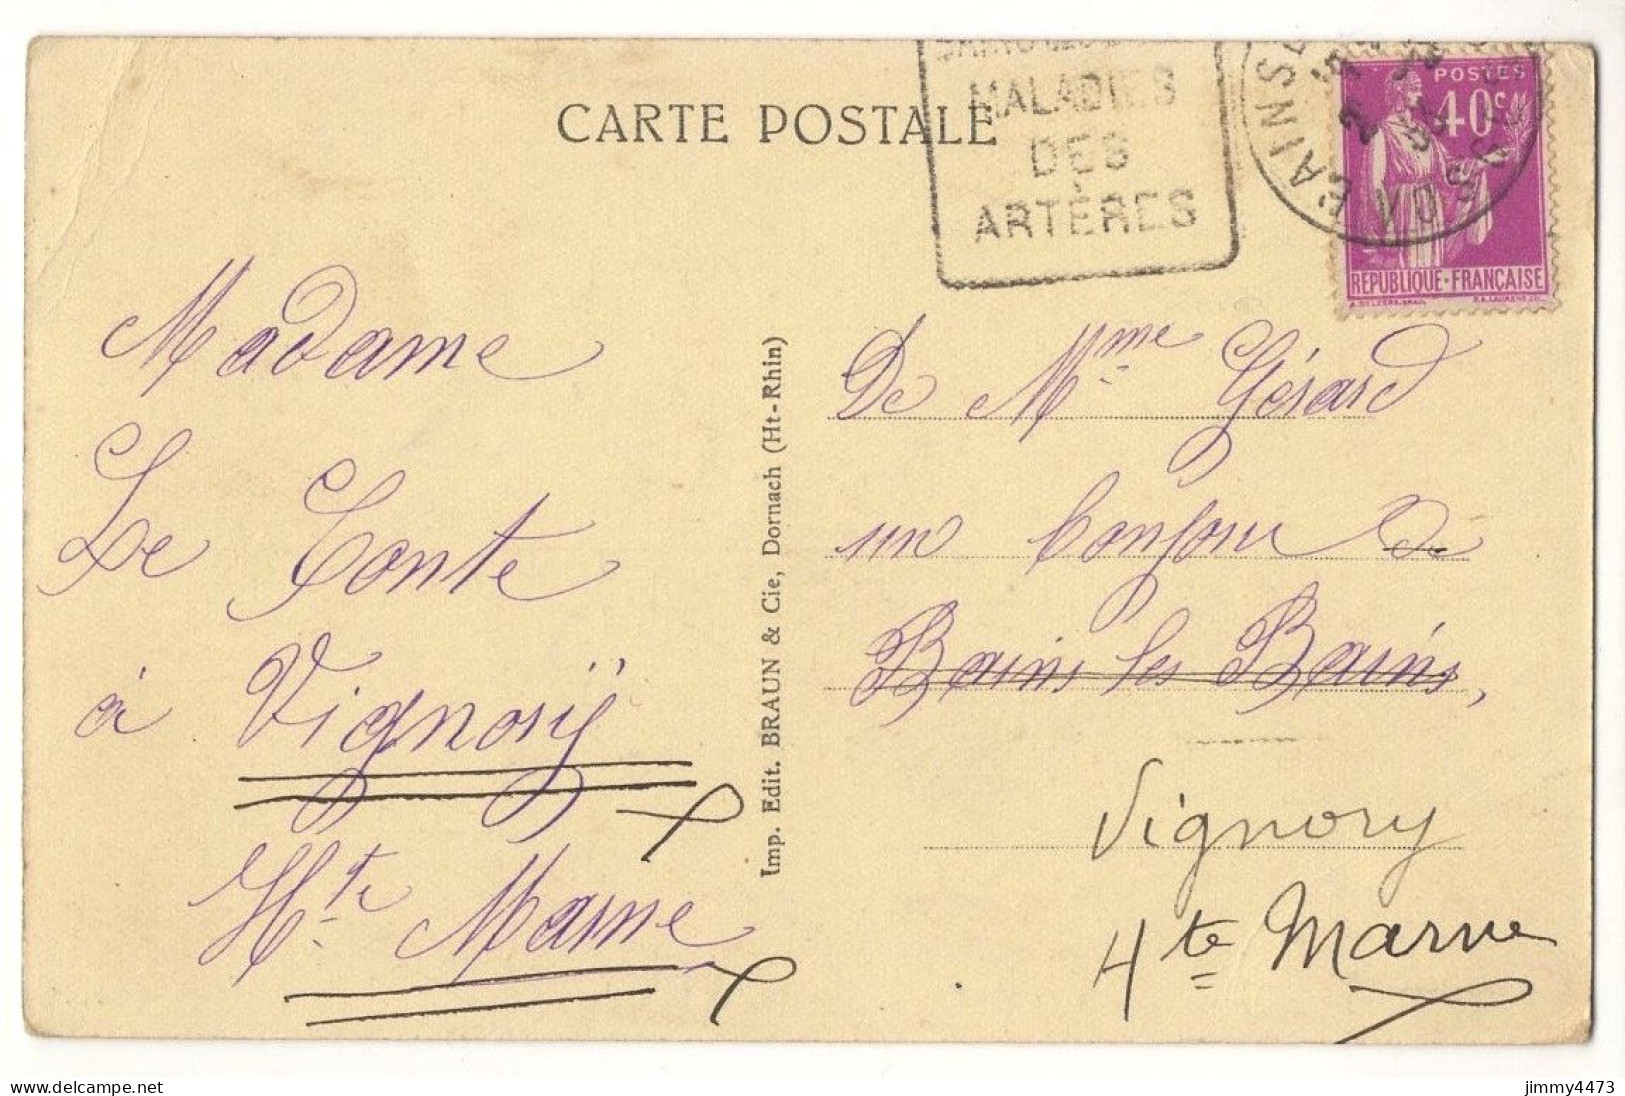 CARTE POSTALE
MALADIES
DES
ARTÈRES
POSTES
40c
RÉPUBLIQUE·FRANÇAISE
Madame
Le Conte
à Vignory
Hte Marne
Imp. Edit. BRAUN & Cie, Dornach (Ht-Rhin)
De Mme Gérard
un bonjour de
Bains les Bains,
Vignory
Hte Marne
jimmy4473
delcampe.net